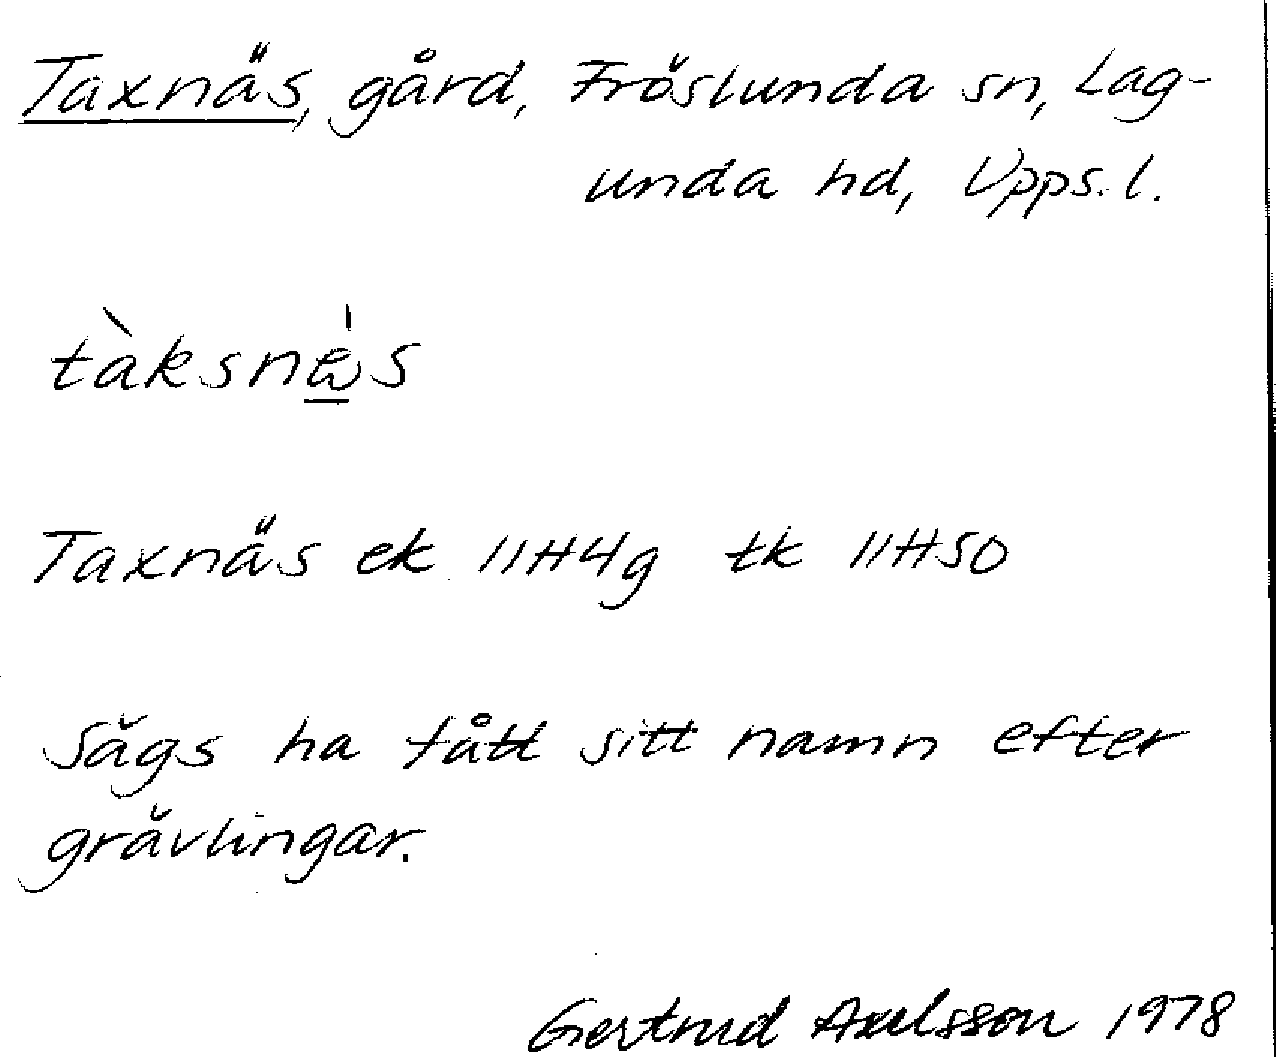 Taxnäs, gård, Fröslunda sn, Lag-
unda hd, Upps. l.
Taxnäs ek 11H4g tk 11H50
Sägs ha fått sitt namn efter
grävlingar.
Gertrud Axelsson 1978